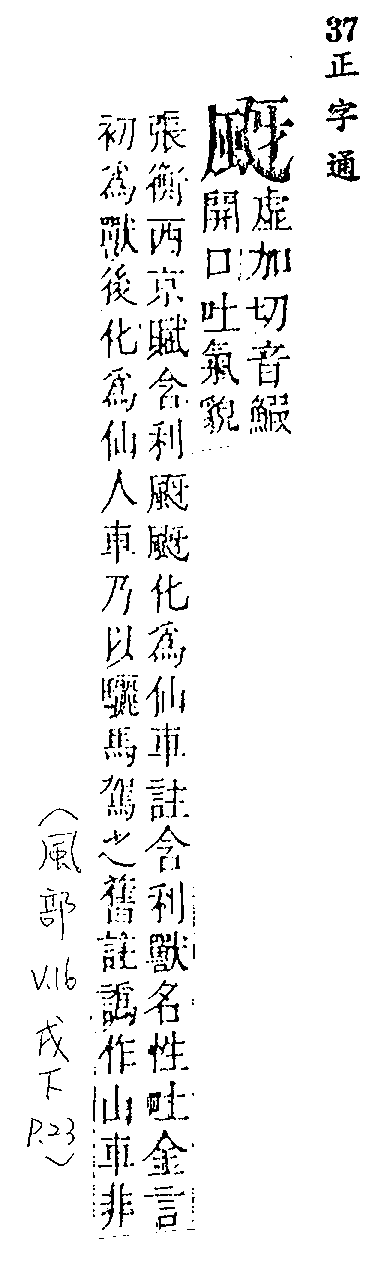 37 正字通
颬
虛加切音鰕
開口吐氣貌
張衡西京賦含利颬颬化爲仙車註含利獸名性吐金言
初爲獸後化爲仙人車乃以驪馬駕之舊註譌作山車非
(風部 V.16 戌下 P.23)